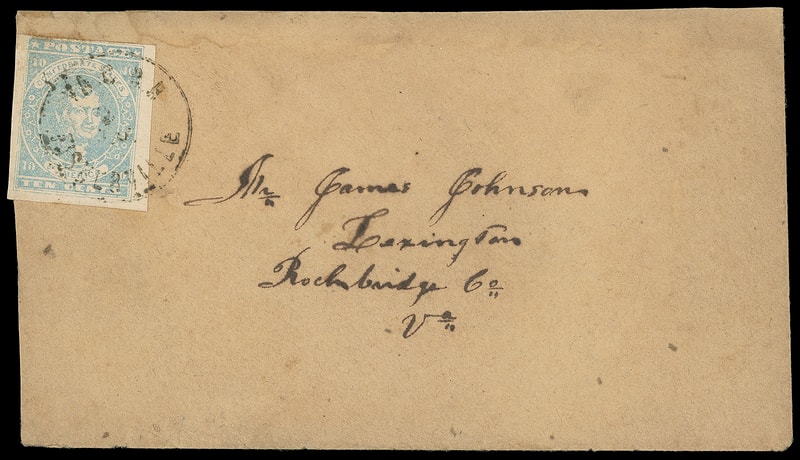 POSTAGE
10 10
CONFEDERATE STATES
10
TEN CENTS
Mr James Johnson
Lexington
Rockbridge Co
Va